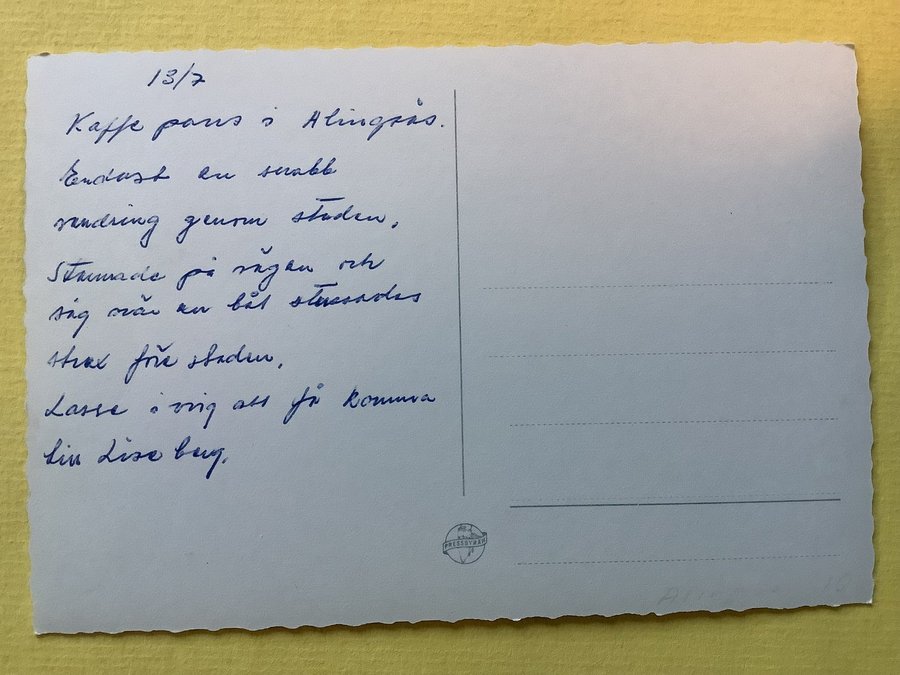 13/7
Kaffe paus i Alingsås.
Endast en snabb
vandring genom staden.
Stannade på vägen och
såg när en båt slussades
strax före staden.
Lasse ivrig att få komma
till Lise berg.
PRESSBYRÅN